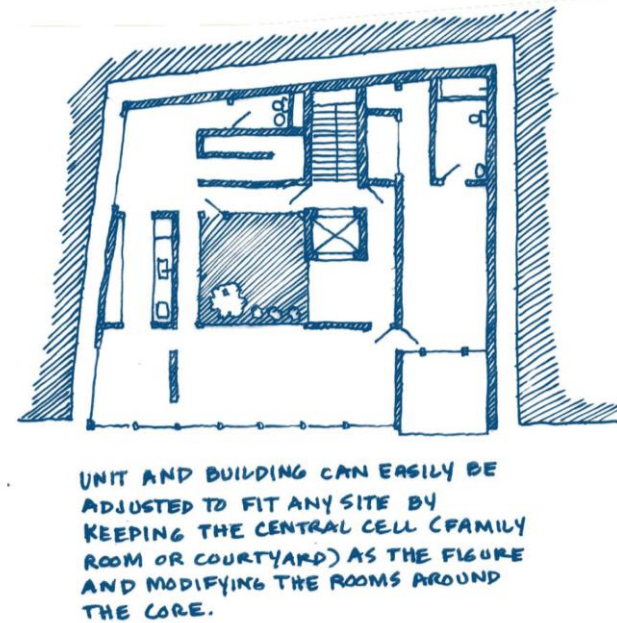 UNIT AND BUILDING CAN EASILY BE
ADJUSTED TO FIT ANY SITE BY
KEEPING THE CENTRAL CELL (FAMILY
ROOM OR COURTYARD) AS THE FIGURE
AND MODIFYING THE ROOMS AROUND
THE CORE.